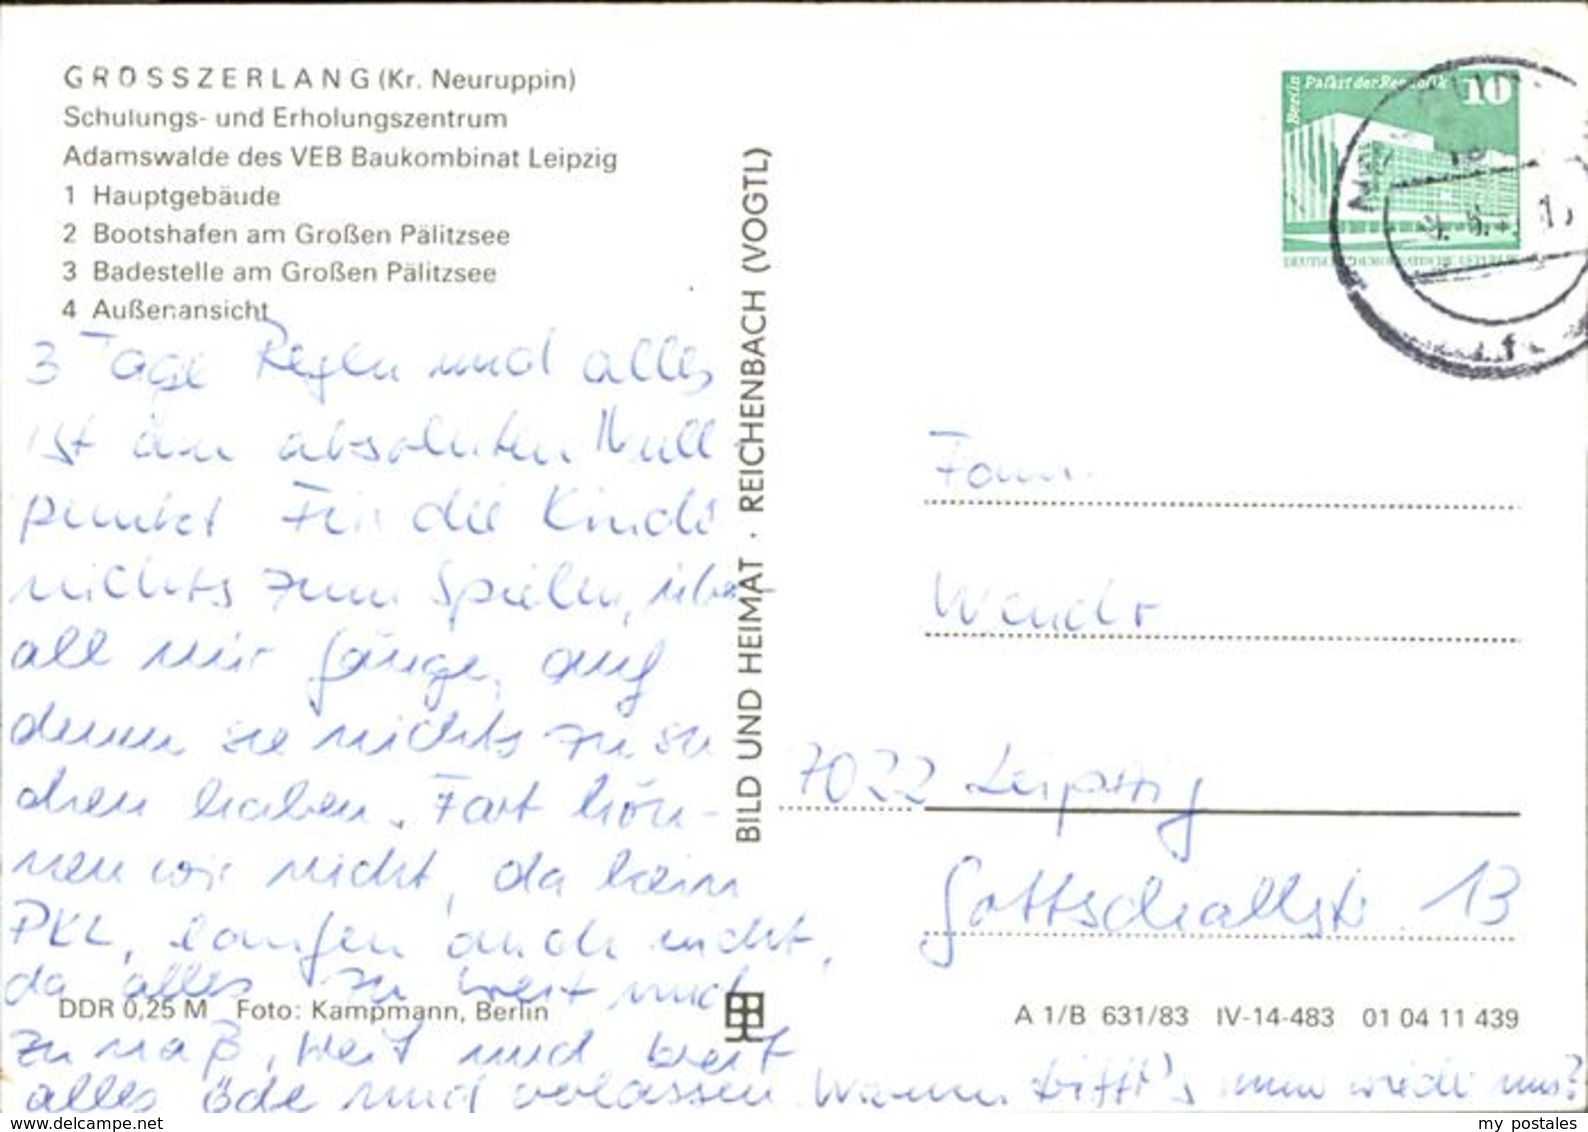 GROSSZERLANG (Kr. Neuruppin)
Schulungs- und Erholungszentrum
Adamswalde des VEB Baukombinat Leipzig
1 Hauptgebäude
2 Bootshafen am Großen Pälitzsee
3 Badestelle am Großen Pälitzsee
4 Außenansicht
3 Tage Regen und alles
ist am absoluten Null-
punkt Für die Kinder
nichts zum Spielen, über-
all nur, auf
denen sie nichts zu su
chen haben. Fort kön-
nen wir nicht, da kein
PKW, laufen auch nicht,
da alles zu weit und
zu naß, weit und breit
alles öde und verlassen Wann trifft's mal wieder uns?
BILD UND HEIMAT · REICHENBACH (VOGTL)
Berlin Palast der Republik 10
Fam.
7022 Leipzig
Gottschallstr. 13
DDR 0,25 M Foto: Kampmann, Berlin
A 1/B 631/83 IV-14-483 01 04 11 439
www.delcampe.net
my_postales